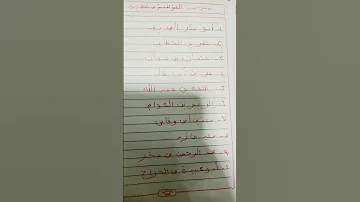 ١. أبو بكر الصديق
٢. عمر بن الخطاب
٣. عثمان بن عفان
٤. علي بن أبي طالب
٥. طلحة بن عبيد الله
٦. الزبير بن العوام
٧. سعد بن أبي وقاص
٨. سعيد بن زيد
٩. عبد الرحمن بن عوف
١٠. أبو عبيدة بن الجراح